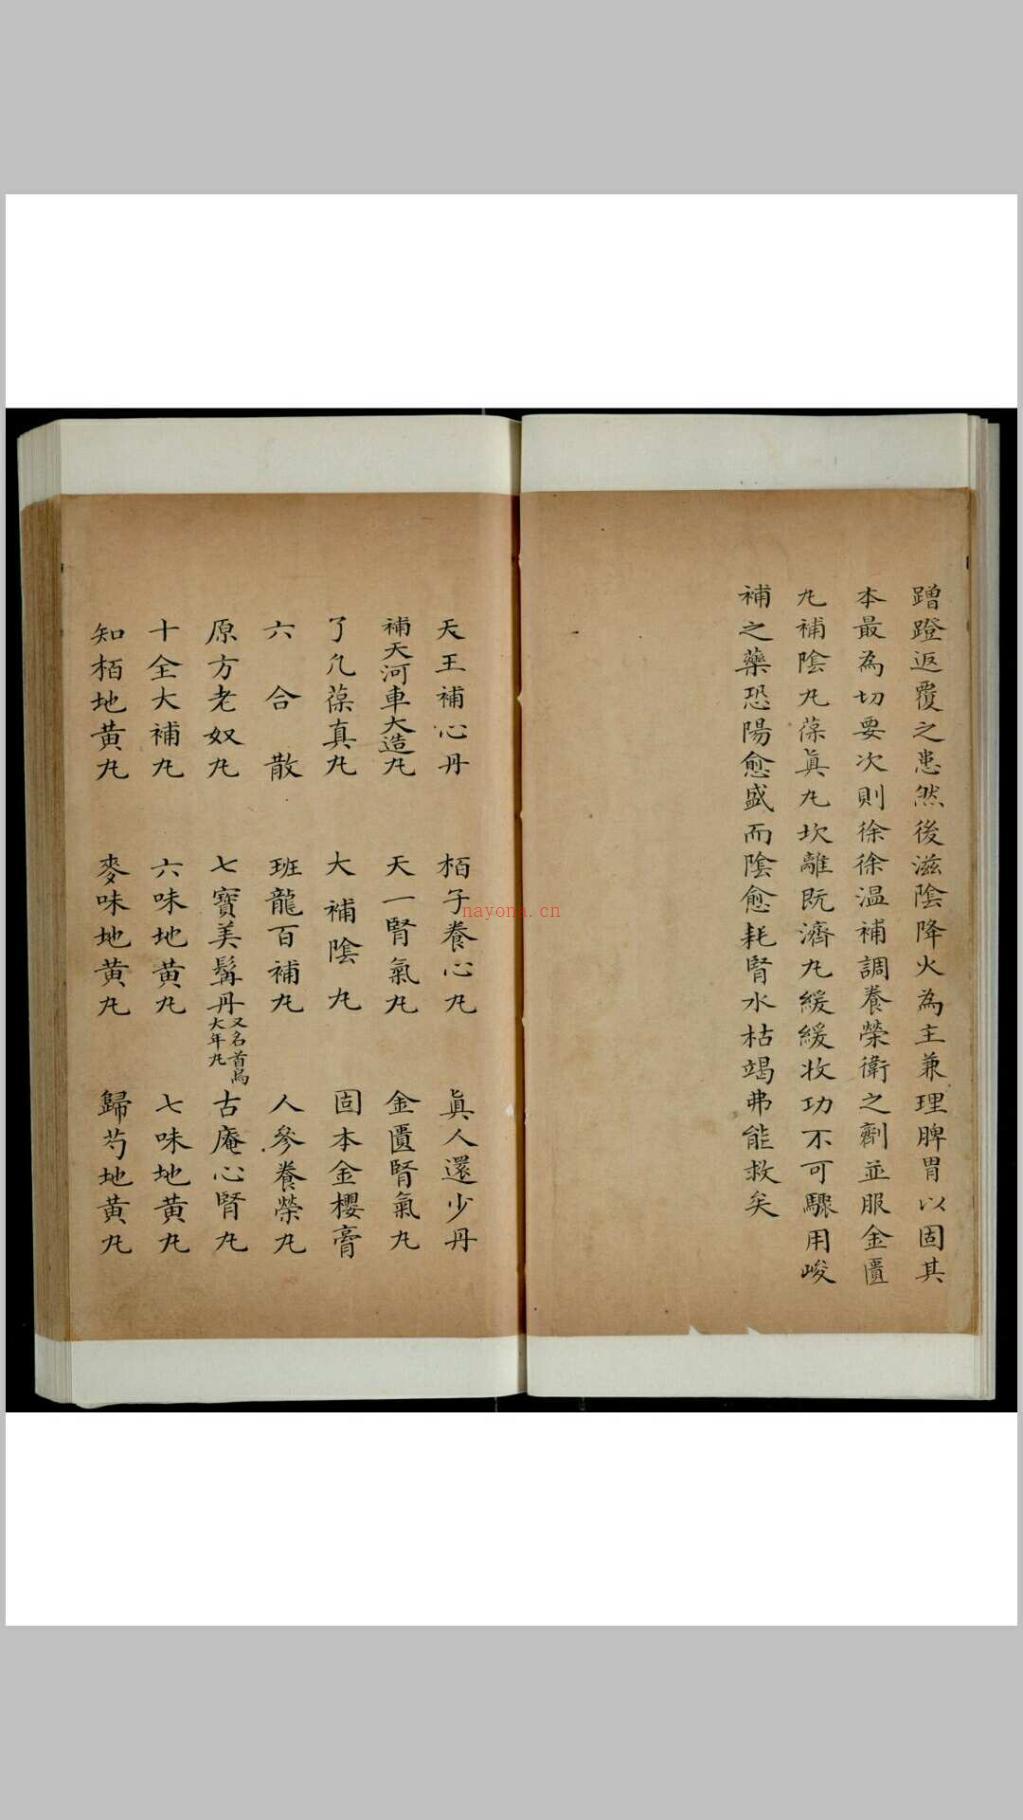 蹭蹬返覆之患然後滋陰降火為主兼理脾胃以固其
本最為切要次則徐徐温補調養榮衛之劑並服金匱
凢補陰凢葆眞凢坎離既濟凢緩緩收功不可驟用峻
補之藥恐陽愈盛而陰愈耗腎水枯竭弗能救矣
天王補心丹 栢子養心凢 眞人還少丹
補天河車大造凢 天一腎氣凢 金匱腎氣凢
了凡葆真凢 大補陰凢 固本金櫻膏
六合散 班龍百補凢 人參養榮凢
原方老奴凢 七寶美髯丹又名首烏大年凢 古庵心腎凢
十全大補凢 六味地黄凢 七味地黄凢
知栢地黄凢 麥味地黄凢 歸芍地黄凢
nayona.cn